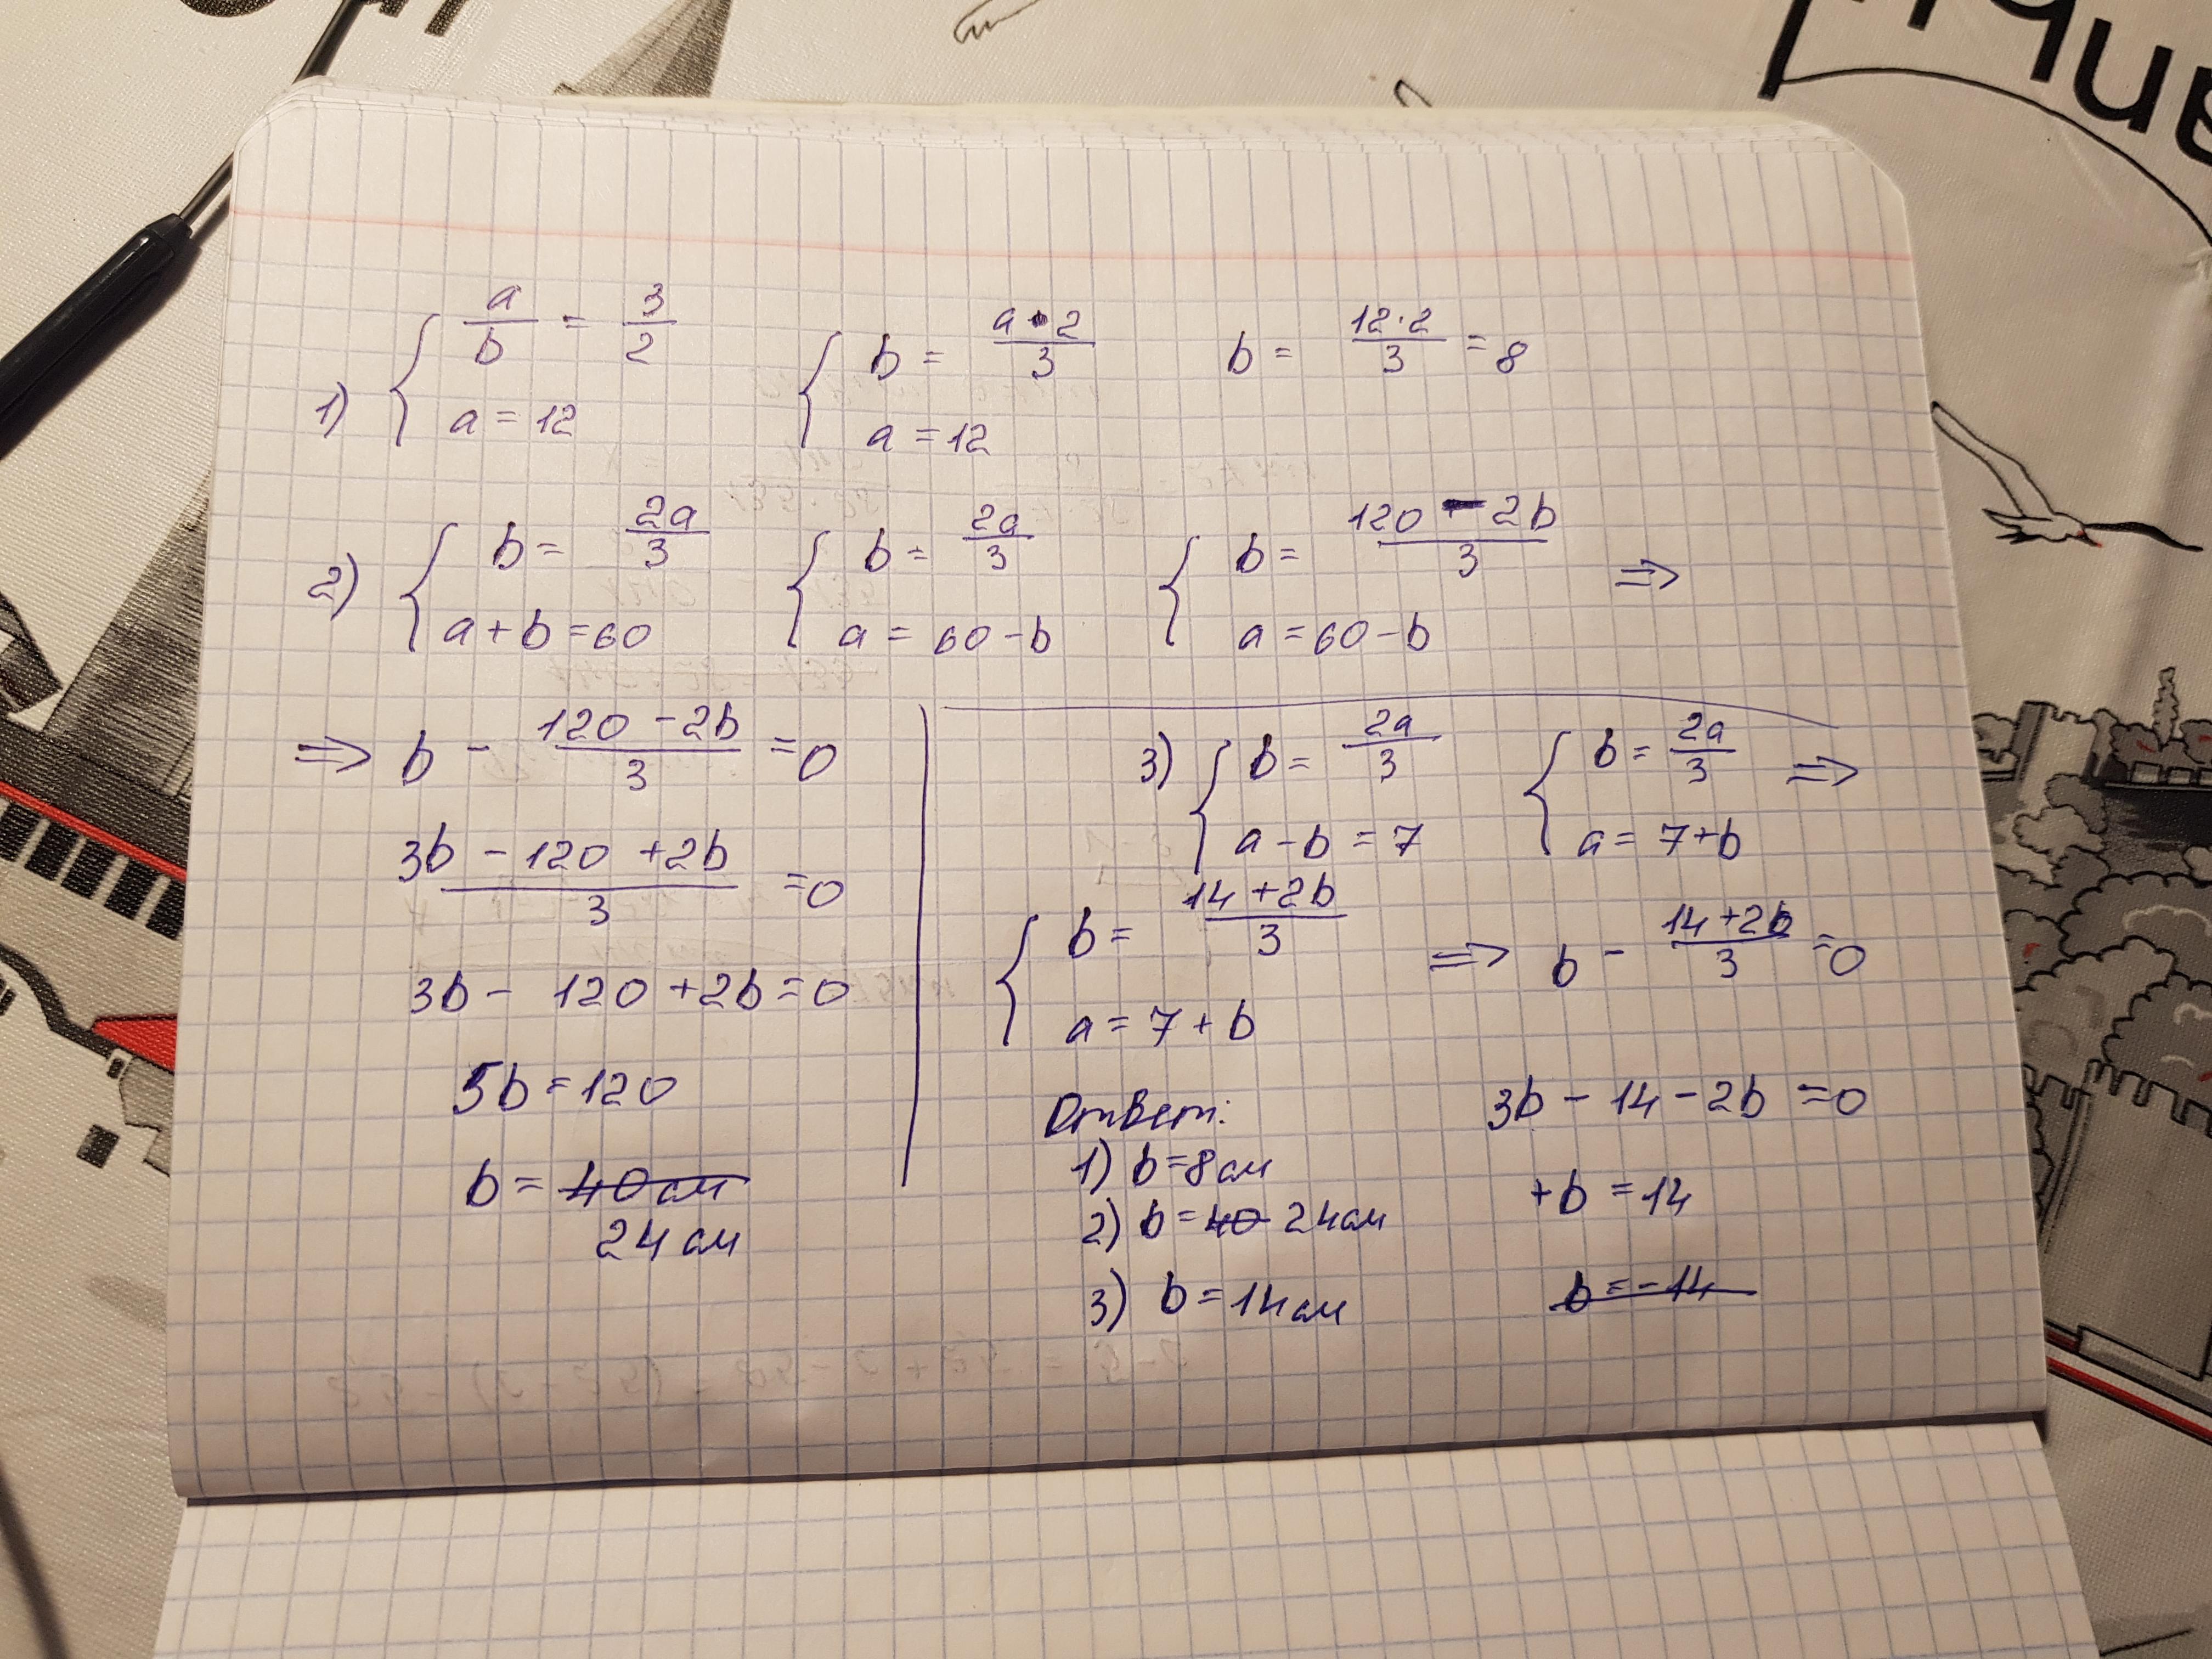 1) { a/b = 3/2 ; a = 12 { b = a·2/3 ; a = 12 b = 12·2/3 = 8
2) { b = 2a/3 ; a + b = 60 { b = 2a/3 ; a = 60 - b { b = 120 - 2b/3 ; a = 60 - b ⇒
⇒ b - 120 - 2b/3 = 0
3b - 120 + 2b/3 = 0
3b - 120 + 2b = 0
5b = 120
b = 40 см
24 см
3) { b = 2a/3 ; a - b = 7 { b = 2a/3 ; a = 7 + b ⇒
{ b = 14 + 2b/3 ; a = 7 + b ⇒ b - 14 + 2b/3 = 0
3b - 14 - 2b = 0
+b = 14
b = -14
Ответ:
1) b = 8 см
2) b = 40 24 см
3) b = 14 см